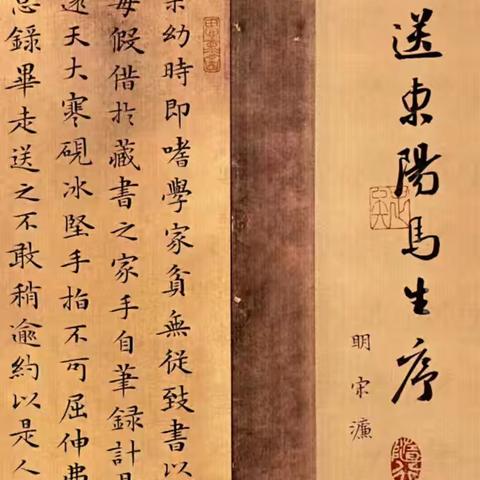 送東陽馬生序
明宋濂
余幼時即嗜學家貧無從致書以
每假借於藏書之家手自筆錄計日
還天大寒硯冰堅手指不可屈伸弗
怠錄畢走送之不敢稍逾約以是人